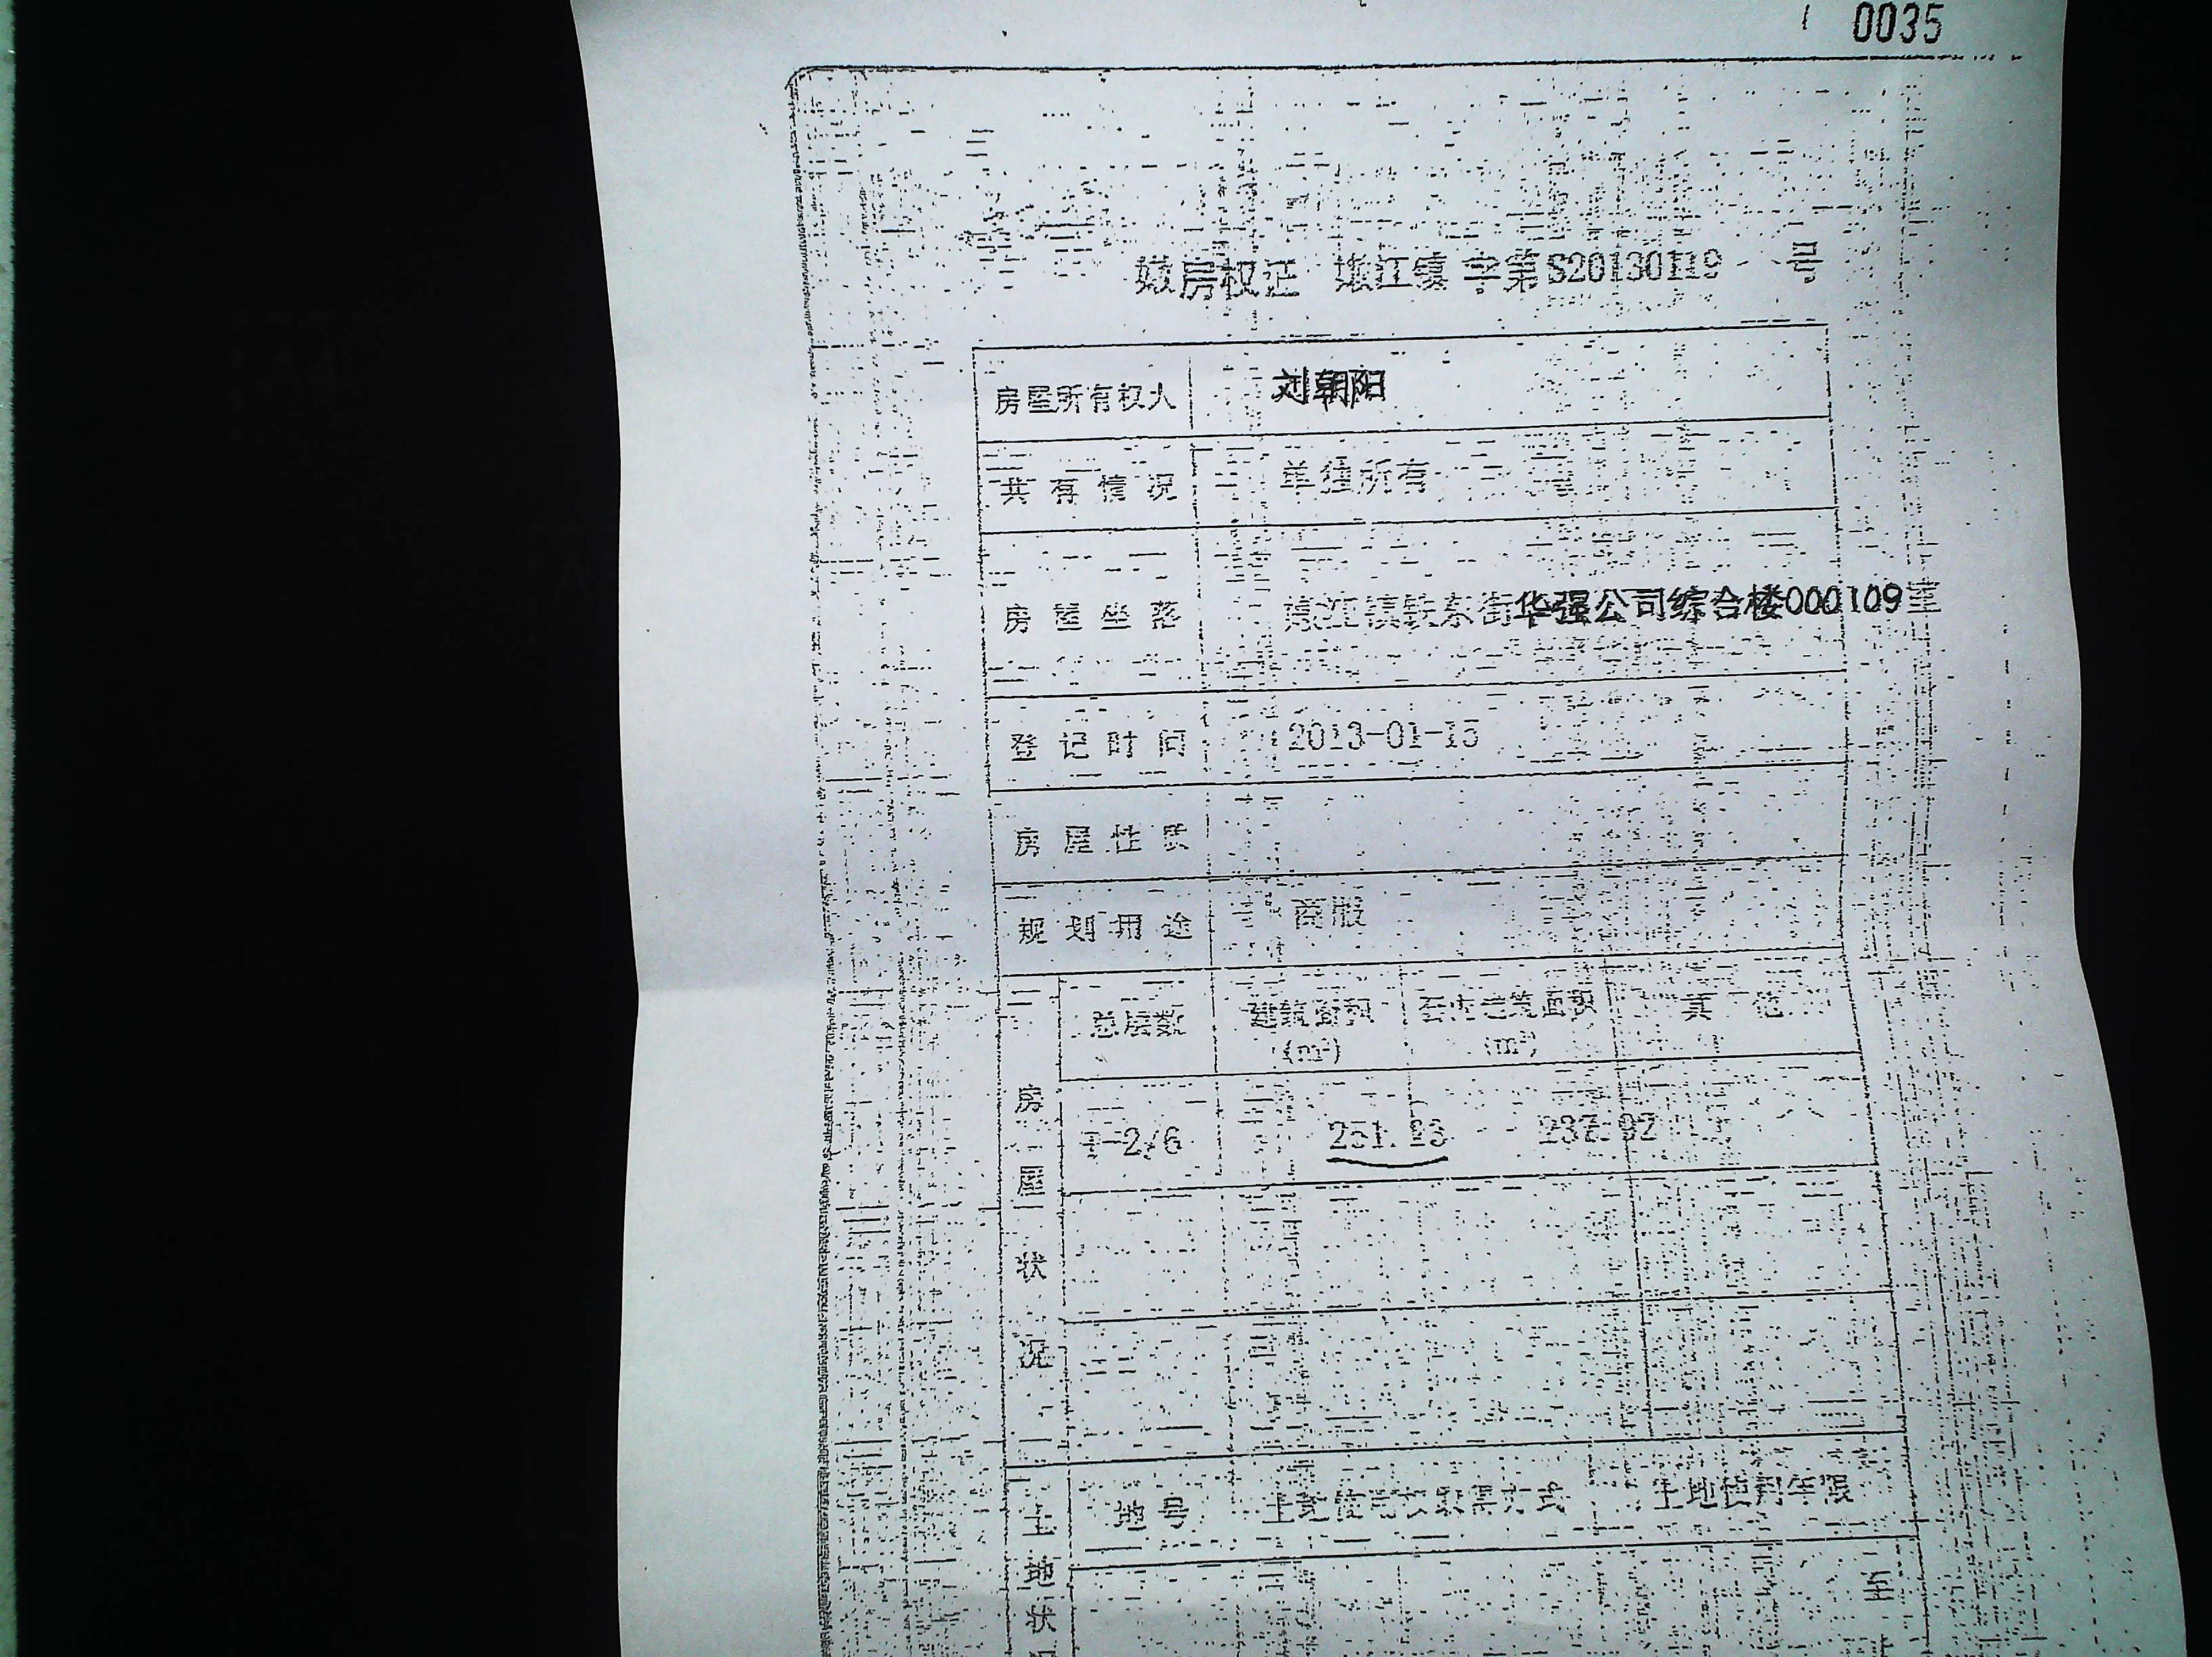 0035
嫩房权证 嫩江镇 字第S20130119 号
房屋所有权人 刘朝阳
共有情况 单独所有
房屋坐落 嫩江镇铁东街华强公司综合楼000109室
登记时间 2013-01-15
房屋性质
规划用途 商服
房屋状况
总层数 建筑面积(m²) 套内建筑面积(m²) 其他
1-2/6
土地状
地号 土地使用年限